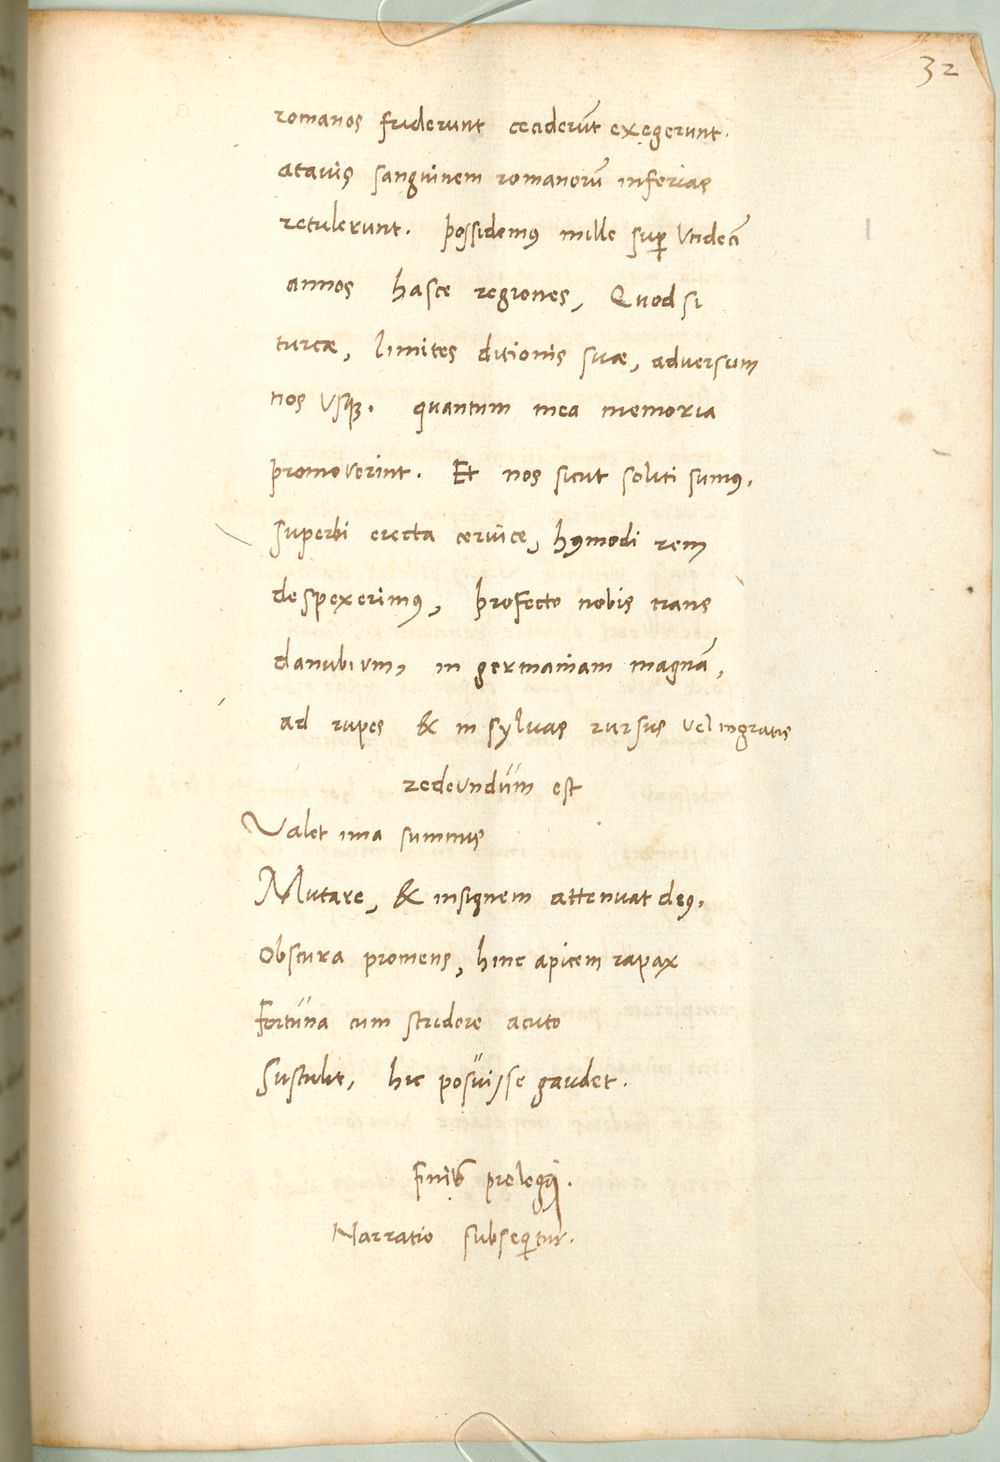 32
romanos friderunt ceciderūt exegerunt.
atauis sanguinem romanorū inferias
retulerunt. possidemꝰ mille suꝑ Vndecī
annos hasce regiones, Quod si
turcæ, limites ditionis suæ, adversum
nos Vsqꝫ. quantum mea memoria
promoverint. Et nos sicut soluti sumꝰ,
superbi erecta cervice, hꝰmodi rem
despexerimꝰ, profecto nobis trans
danubium, in germaniam magnā,
ad rupes & in sylvas rursus vel ingratis
redeundum est
Valet ima summis
Mutare, & insignem attenuat deꝰ,
Obscura promens, hinc apicem rapax
fortuna cum stridore acuto
Sustulit, hic posuisse gaudet.
finis prologi.
Narratio subseqitur.